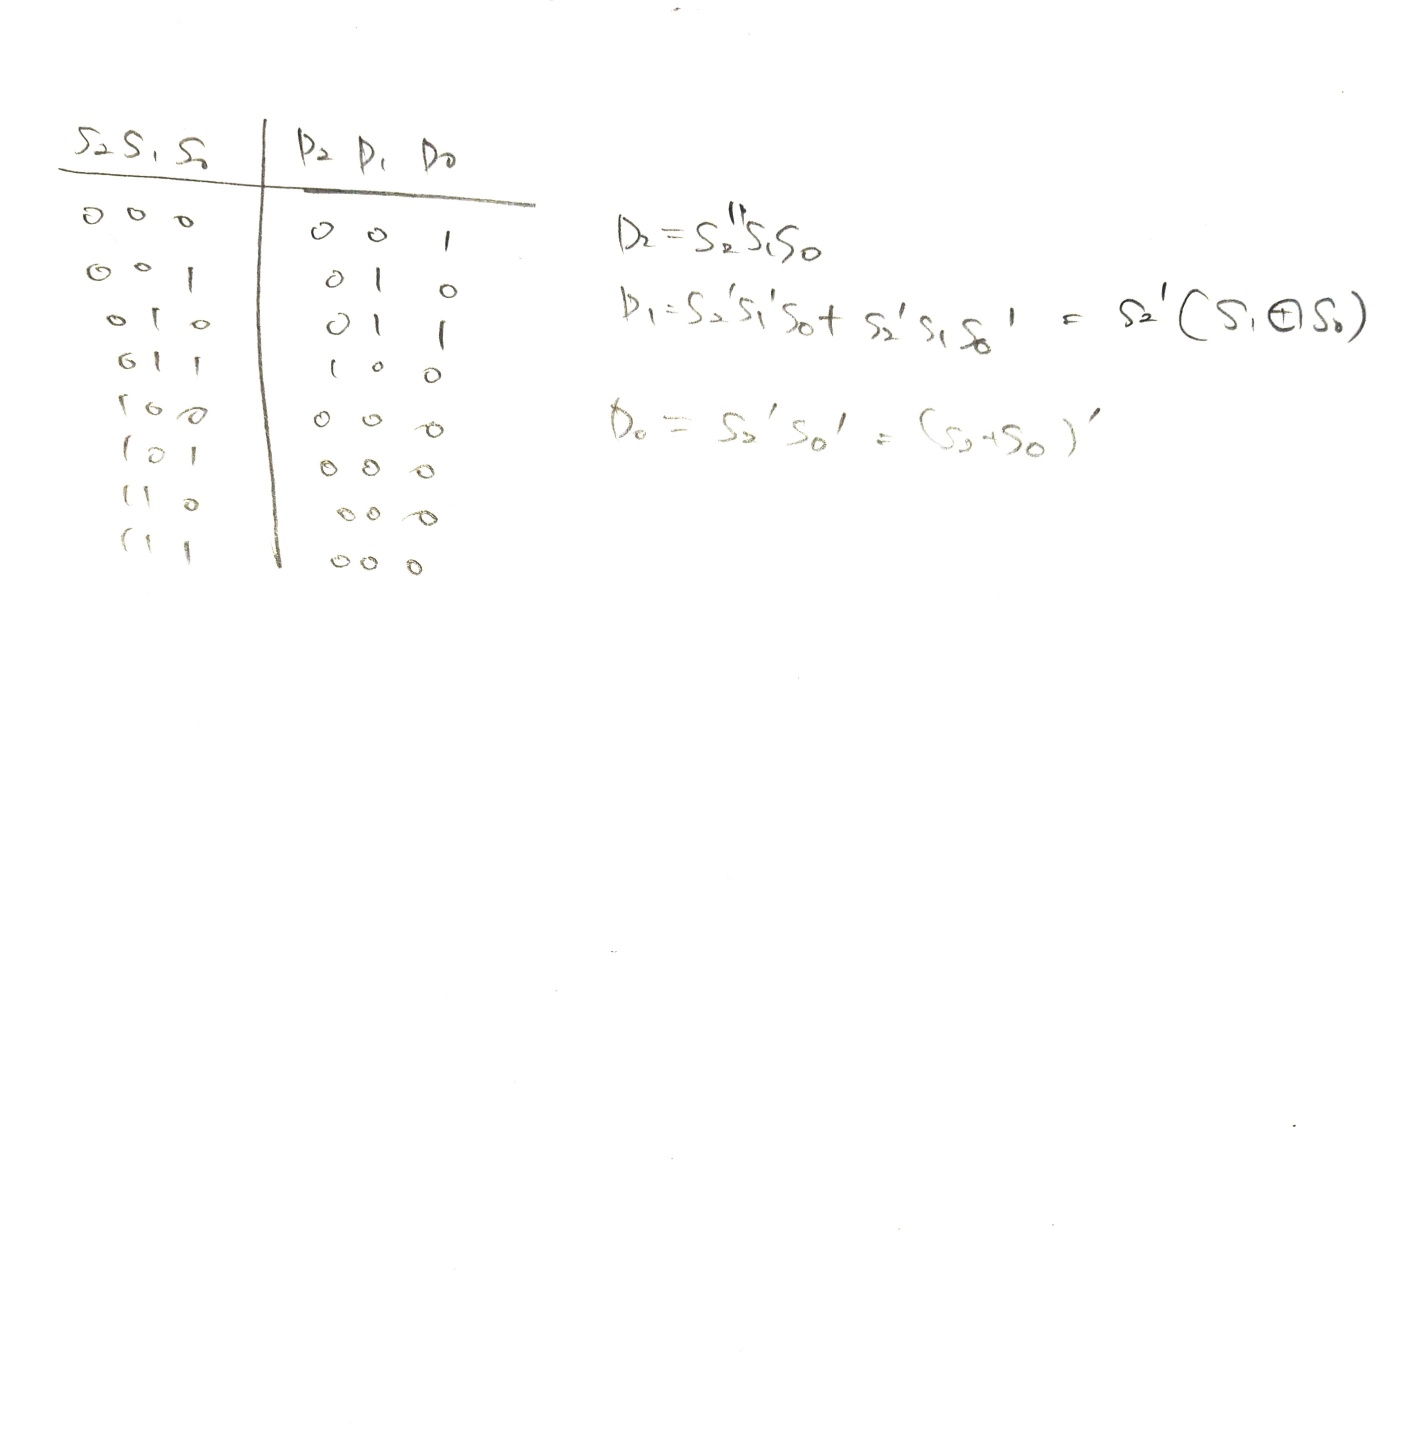 S₂ S₁ S₀ | D₂ D₁ D₀
0 0 0 | 0 0 1
0 0 1 | 0 1 0
0 1 0 | 0 1 1
0 1 1 | 1 0 0
1 0 0 | 0 0 0
1 0 1 | 0 0 0
1 1 0 | 0 0 0
1 1 1 | 0 0 0
D₂ = S₂''S₁S₀
D₁ = S₂'S₁'S₀ + S₂'S₁S₀' = S₂'(S₁⊕S₀)
D₀ = S₂'S₀' = (S₂+S₀)'